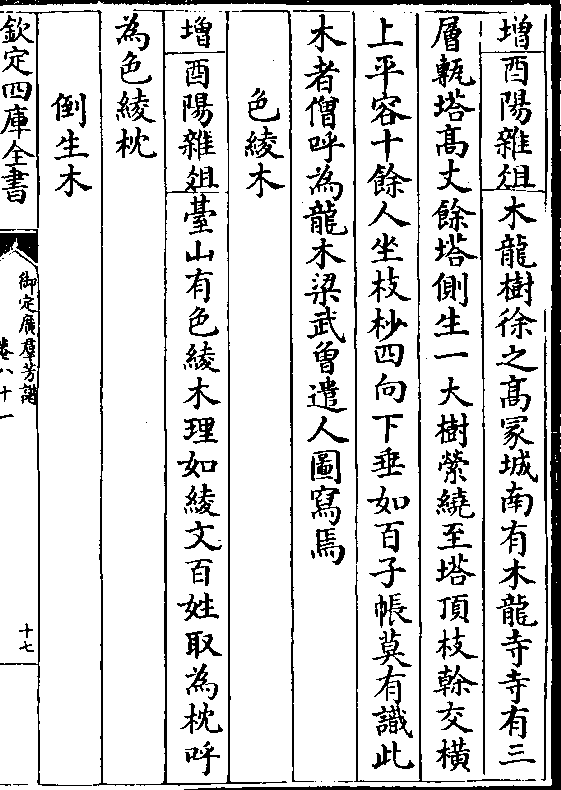 增酉陽雜俎木龍樹徐之高冡城南有木龍寺寺有三
層甎塔高丈餘塔側生一大樹縈繞至塔頂枝榦交橫
上平容十餘人坐枝杪四向下垂如百子帳莫有識此
木者僧呼為龍木梁武曾遣人圖寫焉
色綾木
增酉陽雜俎臺山有色綾木理如綾文百姓取為枕呼
為色綾枕
倒生木
欽定四庫全書
御定廣羣芳譜
卷八十一
十七